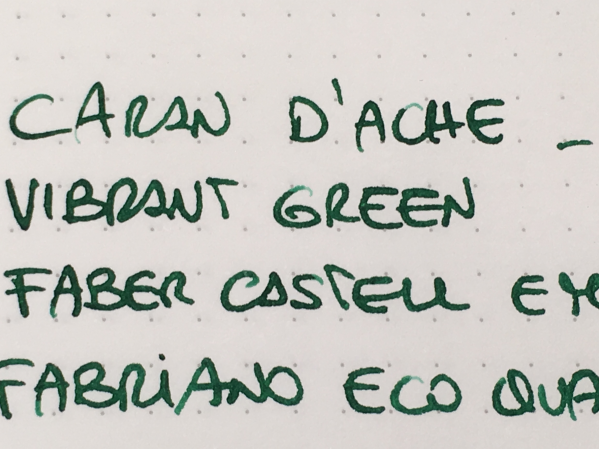 CARAN D'ACHE -
VIBRANT GREEN
FABER CASTELL
FABRIANO ECO QUA